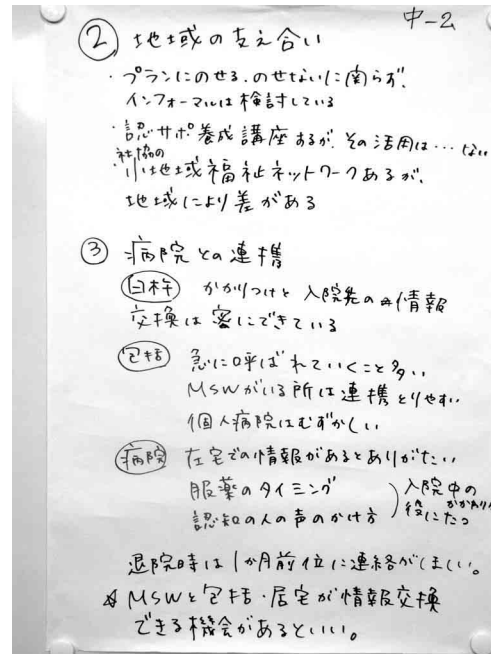 中-2
② 地域の支え合い
・プランにのせる、のせないに関らず、
インフォーマルは検討している
・認サポ養成講座あるが、その活用は…ない
社協の
小地域福祉ネットワークあるが、
地域により差がある
③ 病院との連携
臼杵 かかりつけと入院先の情報
交換は密にできている
包括 急に呼ばれていくこと多い
MSWがいる所は連携とりやすい
個人病院はむずかしい
病院 在宅での情報があるとありがたい
服薬のタイミング
認知の人の声のかけ方
入院中の
かかわり
役にたつ
退院時は1か月前位に連絡がほしい。
☆MSWと包括・居宅が情報交換
できる機会があるといい。